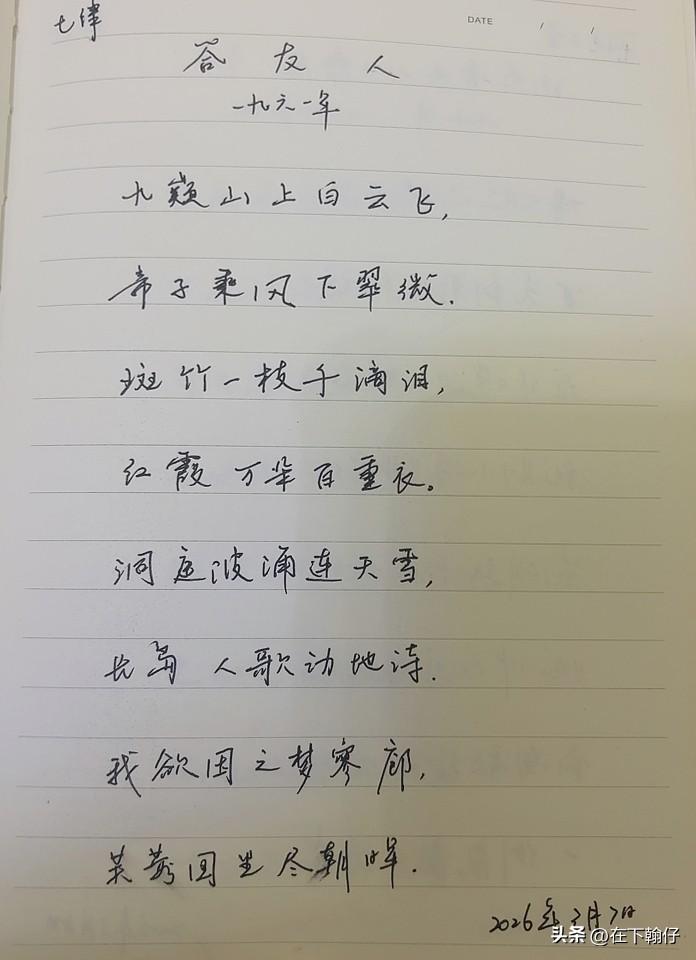 七律
DATE / /
答友人
一九六一年
九嶷山上白云飞,
帝子乘风下翠微.
斑竹一枝千滴泪,
红霞万朵百重衣。
洞庭波涌连天雪,
长岛人歌动地诗.
我欲因之梦寥廓,
芙蓉国里尽朝晖.
2026年3月7日
头条 @在下翰仔